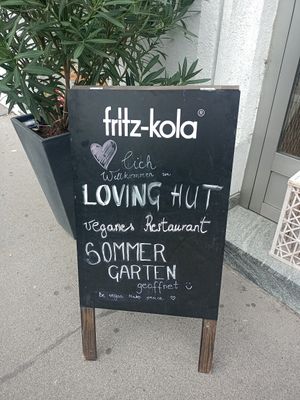 fritz-kola®
♥lich
Willkommen im
LOVING HUT
veganes Restaurant
SOMMER
GARTEN
geöffnet :)
Be vegan make peace ♡